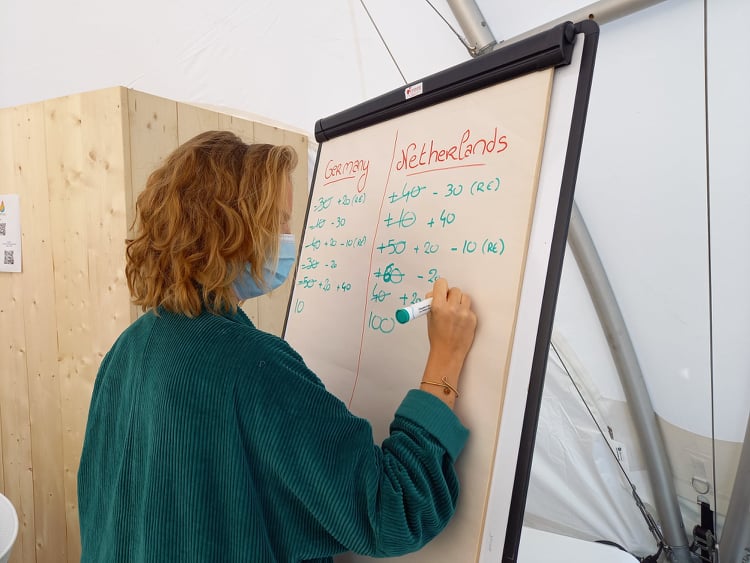 Germany
-30 +20 (RE)
-10 -30
-40 +20 -10 (RE)
-30 -20
-50 +20 +40
10
Netherlands
+40 -30 (RE)
+10 +40
+50 +20 -10 (RE)
+60 -20
40 +20
100